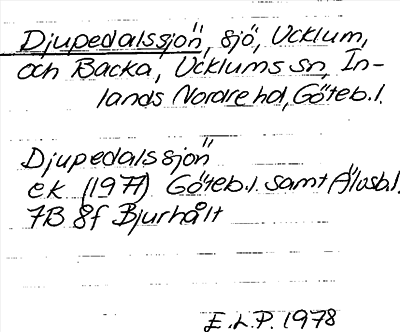 Djupedalssjön, sjö, Ucklum,
och Backa, Ucklums sn, In-
lands Nordre hd, Göteb. l.
Djupedalssjön
ek (1977) Göteb. l. samt Älvsb. l.
7B 8f Bjurhålt
E. L. P. 1978